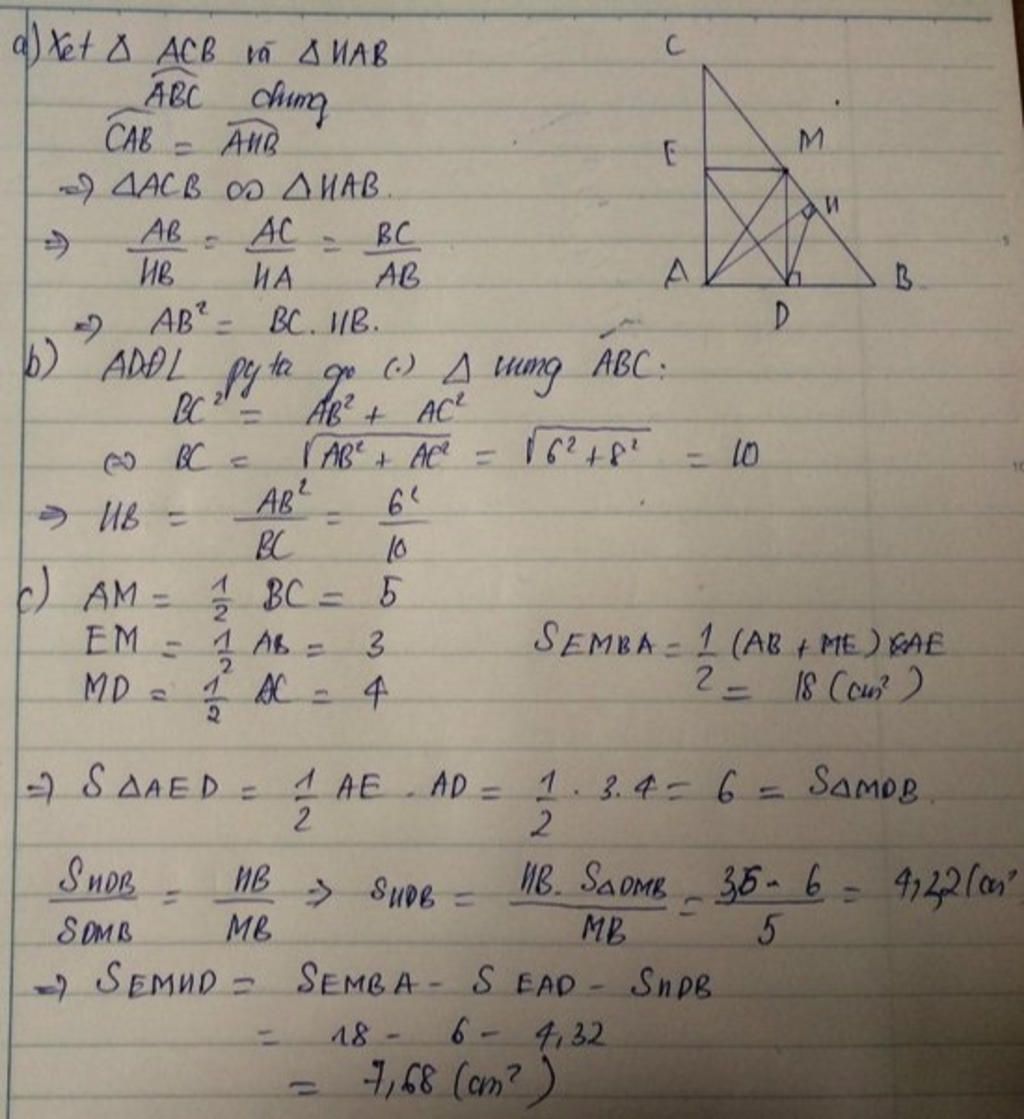 a) Xét Δ ACB và Δ HAB
ABC chung
CAB = AHB
=> ΔACB ∽ ΔHAB.
=> AB/HB = AC/HA = BC/AB
=> AB² = BC. HB.
b) ADĐL pytago (.) Δ vuông ABC:
BC² = AB² + AC²
⇔ BC = √(AB² + AC²) = √(6² + 8²) = 10
=> HB = AB²/BC = 6²/10
c) AM = 1/2 BC = 5
EM = 1/2 AB = 3
MD = 1/2 AC = 4
SEMBA = 1/2 (AB + ME) AE
= 18 (cm²)
=> SΔAED = 1/2 AE . AD = 1/2 . 3. 4 = 6 = SΔMDB.
SHDB/SDMB = HB/MB => SHDB = HB. SΔDMB/MB = 3,6 . 6/5 = 4,32 (cm²
=> SEMHD = SEMBA - SEAD - SHDB
= 18 - 6 - 4,32
= 7,68 (cm²)
C
E
M
H
A
B
D